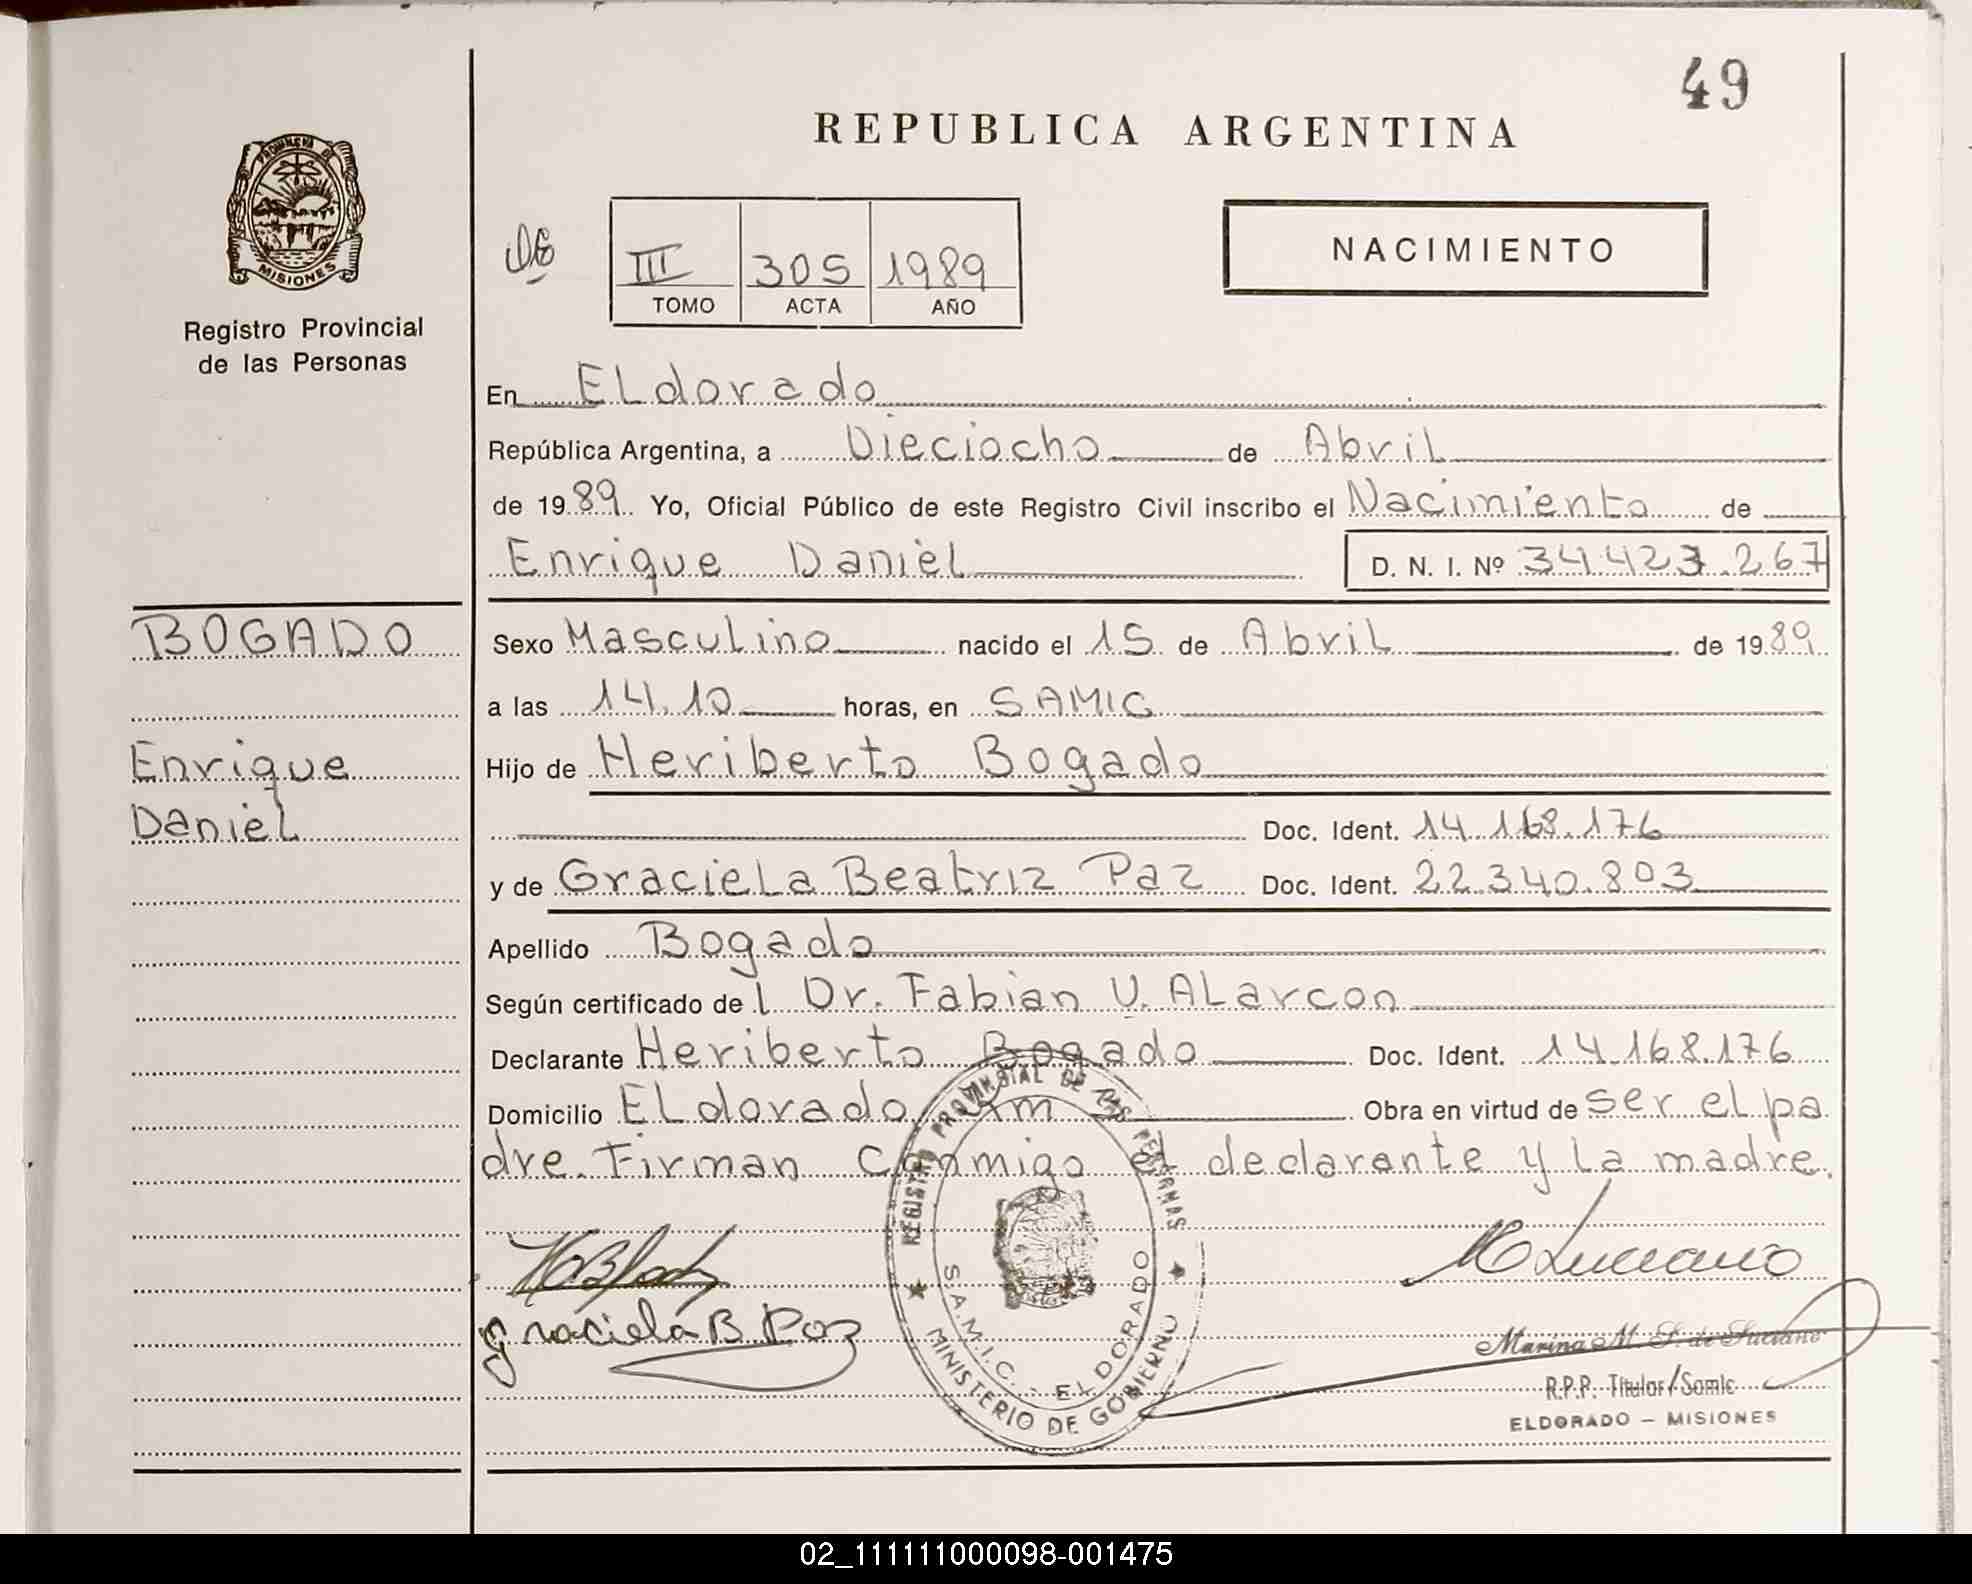 49
REPUBLICA ARGENTINA
PROVINCIA DE
MISIONES
Registro Provincial
de las Personas
III 305 1989
TOMO ACTA AÑO
NACIMIENTO
En ELdorado
República Argentina, a Dieciocho de Abril
de 1989 Yo, Oficial Público de este Registro Civil inscribo el Nacimiento de
Enrique Daniel D. N. I. Nº 34.423.267
BOGADO
Enrique
Daniel
Sexo Masculino nacido el 15 de Abril de 1989
a las 14.10 horas, en SAMIC
Hijo de Heriberto Bogado
Doc. Ident. 14.168.176
y de Graciela Beatriz Paz Doc. Ident. 22.340.803
Apellido Bogado
Según certificado de l Dr. Fabian V. ALarcon
Declarante Heriberto Bogado Doc. Ident. 14.168.176
Domicilio ELdorado Km Obra en virtud de ser el pa
dre. Firman conmigo el declarante y la madre.
Graciela B Paz
REGISTRO PROVINCIAL DE LAS PERSONAS
S.A.M.I.C. - ELDORADO
MINISTERIO DE GOBIERNO
M Luciano
Marina M. S. de Luciano
R.P.P. Titular/Samic
ELDORADO - MISIONES
02_111111000098-001475